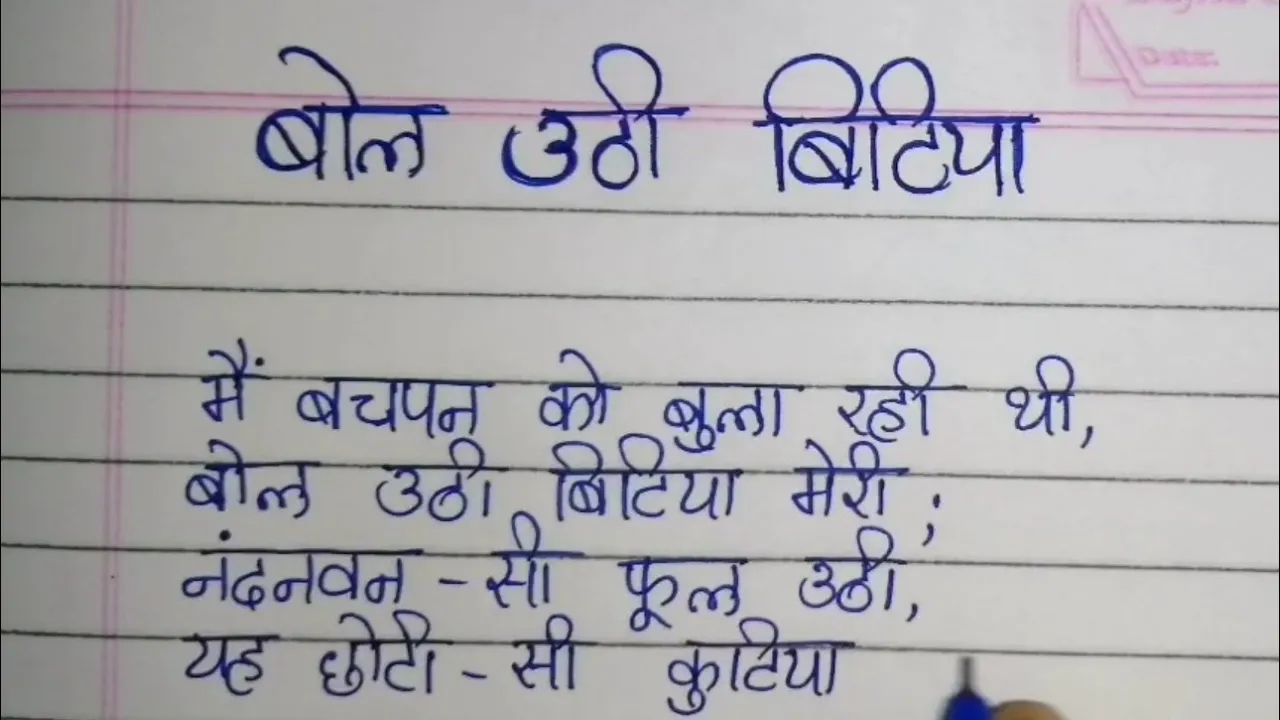 बोल उठी बिटिया
मैं बचपन को बुला रही थी,
बोल उठी बिटिया मेरी ;
नंदनवन - सी फूल उठी,
यह छोटी - सी कुटिया